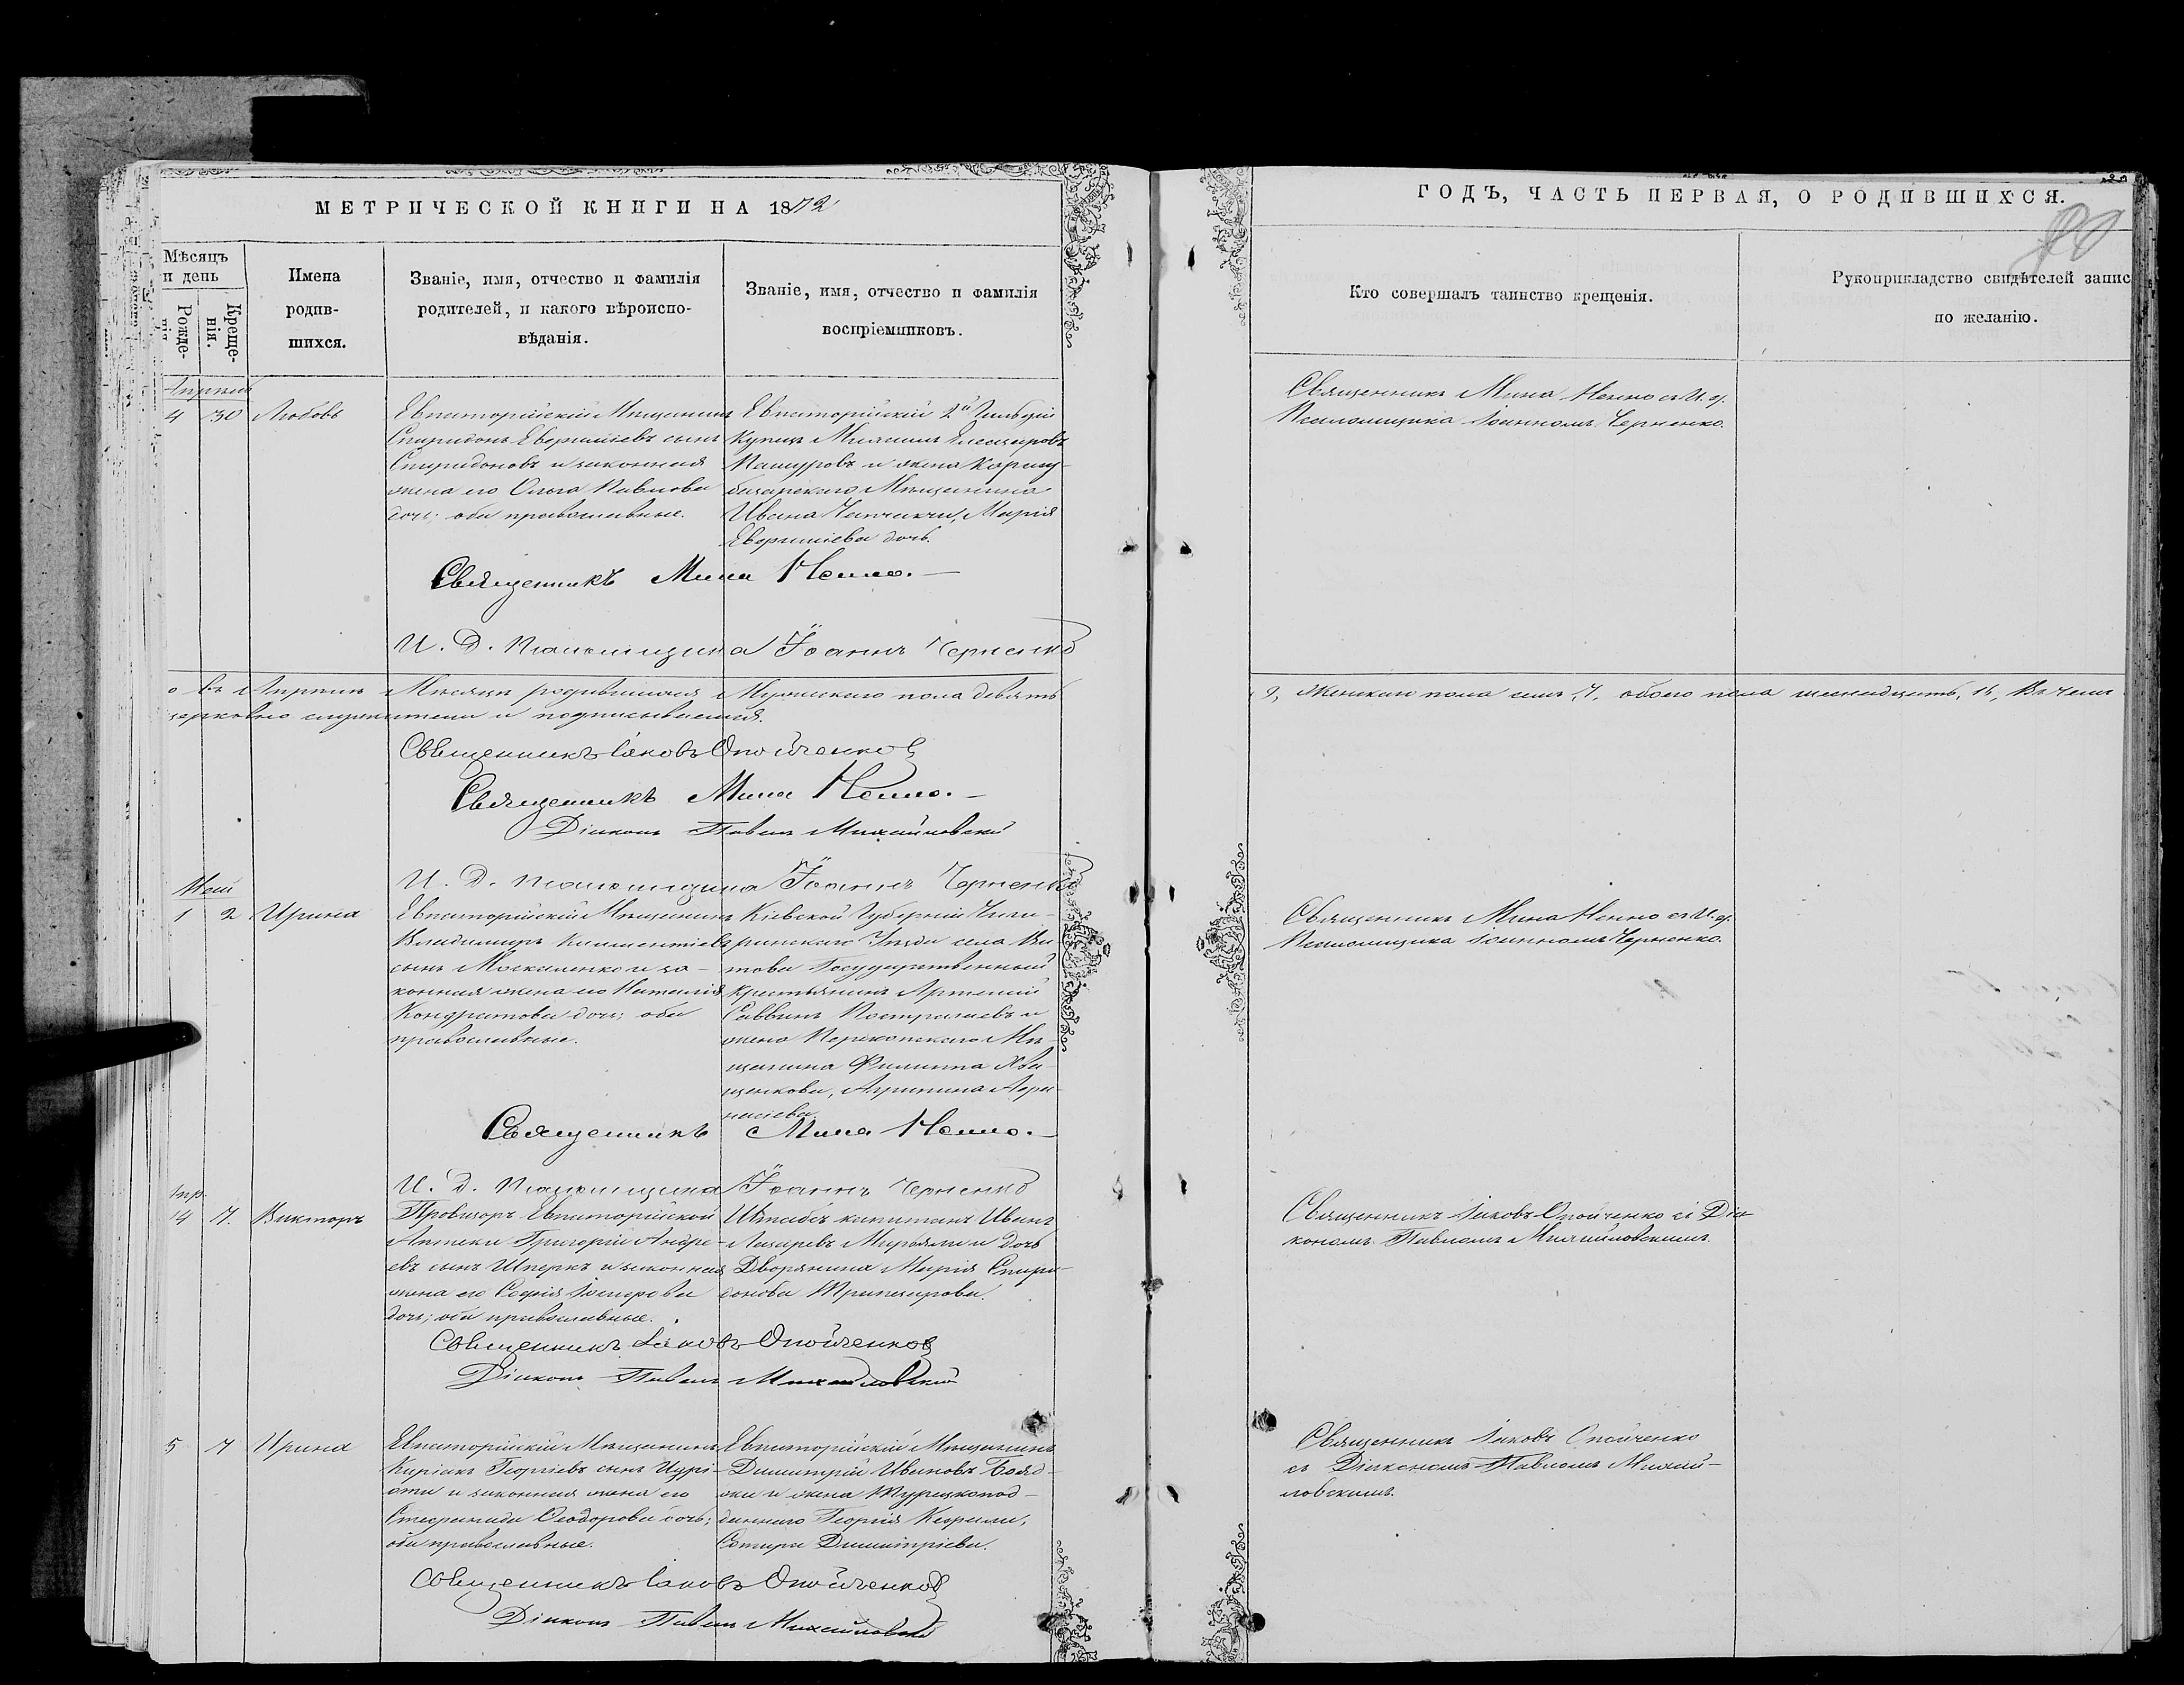 МЕТРИЧЕСКОЙ КНИГИ НА 1872
Мѣсяцъ и день
Рожденія
Крещенія.
Имена родившихся.
Званіе, имя, отчество и фамилія родителей, и какого вѣроисповѣданія.
Званіе, имя, отчество и фамилія воспріемниковъ.
Апрѣль
4 30 Любовь
Евпаторійскій Мѣщанинъ
Спиридонъ сынъ
Спиридоновъ и законная
жена его Ольга Павлова
дочь; оба православные.
Евпаторійскій 2й Гильдіи
Купецъ
и жена Карасу-
базарскаго Мѣщанина
Ивана Марія
дочь.
Священникъ Мина Ненно.
И. Д. Псаломщика Іоаннъ Черненко
въ Апрѣлѣ Мѣсяцѣ родившихся Мужескаго пола девять
церковно служители и подписываемся.
Священникъ Іаковъ Опойченко
Священникъ Мина Ненно.
Діаконъ Павелъ Михайловскій
И. Д. Псаломщика Іоаннъ Черненко
Май
1 2 Ирина
Евпаторійскій Мѣщанинъ
Владимиръ Климентіевъ
сынъ Москаленко и за-
конная жена его Наталія
Кондратова дочь; оба
православные.
Кіевской Губерніи Чиги-
ринскаго Уѣзда села
Государственный
Крестьянинъ Артемій
Саввинъ и
жена Перекопскаго Мѣ-
щанина Филиппа
Агрипина Афа-
насіева.
Священникъ Мина Ненно.
И. Д. Псаломщика Іоаннъ Черненко
Апр.
14 7. Викторъ
Провизоръ Евпаторійской
Аптеки Григорій Андре-
евъ сынъ и законная
жена его Софія
дочь; оба православные.
Штабсъ капитанъ Иванъ
Лазаревъ и дочь
Дворянина Марія Спири-
донова
Священникъ Іаковъ Опойченко
Діаконъ Павелъ Михайловскій
5 7 Ирина
Евпаторійскій Мѣщанинъ
Киріакъ Георгіевъ сынъ
и законная жена его
Стефанида Ѳеодорова дочь;
оба православные.
Евпаторійскій Мѣщанинъ
Димитрій Ивановъ
и жена Турецкопод-
даннаго Георгія
Димитріева.
Священникъ Іаковъ Опойченко
Діаконъ Павелъ Михайловскій
ГОДЪ, ЧАСТЬ ПЕРВАЯ, О РОДИВШИХСЯ.
Кто совершалъ таинство крещенія.
Рукоприкладство свидѣтелей запис
по желанію.
Священникъ Мина Ненно съ И. д.
Псаломщика Іоанномъ Черненко.
9, Женскаго пола семь, 7, обоего пола шеснадцать, 16, Въ чемъ
Священникъ Мина Ненно съ И. д.
Псаломщика Іоанномъ Черненко.
Священникъ Іаковъ Опойченко съ Діа-
кономъ Павломъ Михайловскимъ.
Священникъ Іаковъ Опойченко
съ Діакономъ Павломъ Михай-
ловскимъ.